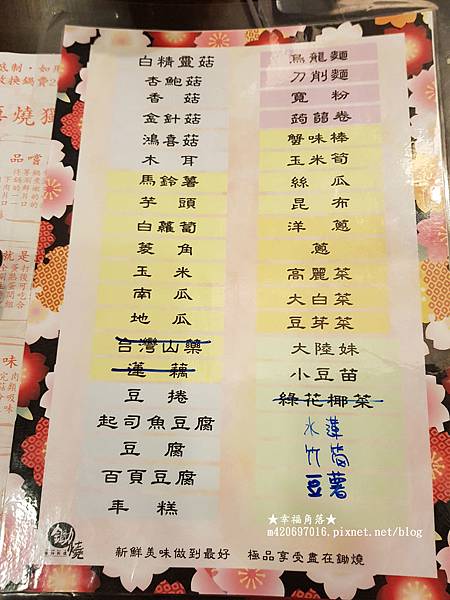 白精靈菇
杏鮑菇
香菇
金針菇
鴻喜菇
木耳
馬鈴薯
芋頭
白蘿蔔
菱角
玉米
南瓜
地瓜
台灣山藥
蓮藕
豆捲
起司魚豆腐
豆腐
百頁豆腐
年糕
烏龍麵
刀削麵
寬粉
蒟蒻卷
蟹味棒
玉米筍
絲瓜
昆布
洋蔥
蔥
高麗菜
大白菜
豆芽菜
大陸妹
小豆苗
綠花椰菜
水蓮
竹筍
豆薯
鋤燒
新鮮美味做到最好 極品享受盡在鋤燒
★幸福角落★
m420697016.pixnet.net/blog
品嚐
就是
味